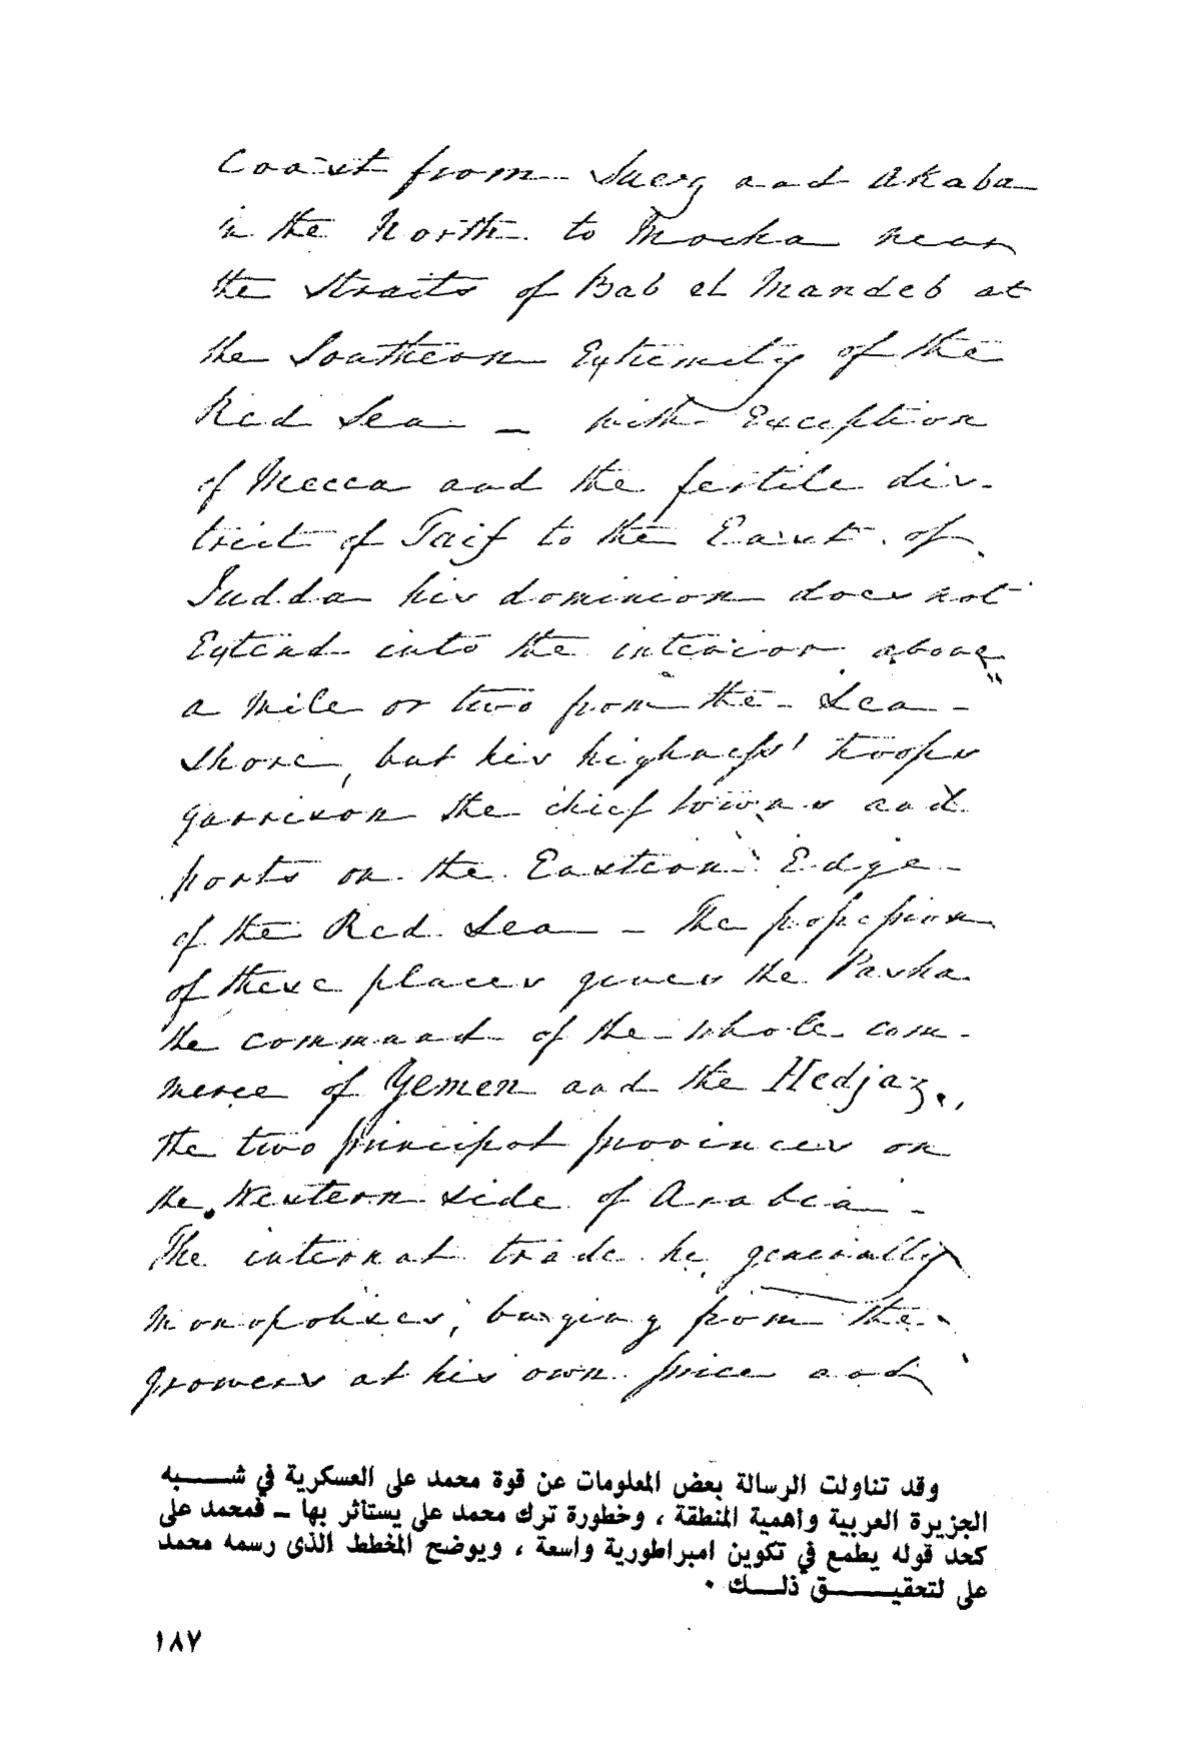 Coast from Suez and Akaba
in the North to Mocha near
the Straits of Bab el Mandeb at
the Southern Extremity of the
Red Sea — with Exception
of Mecca and the fertile dis-
trict of Taif to the East of
Judda his dominion does not
Extend into the interior above
a mile or two from the Sea-
shore, but his highness' troops
garrison the chief towns and
ports on the Eastern Edge
of the Red Sea — The possession
of these places gives the Pasha
the command of the whole com-
merce of Yemen and the Hedjaz,
the two principal provinces on
the Western side of Arabia.
The internal trade he generally
monopolises, buying from the
growers at his own price and
وقد تناولت الرسالة بعض المعلومات عن قوة محمد على العسكرية في شـــــبه
الجزيرة العربية وأهمية المنطقة ، وخطورة ترك محمد على يستأثر بها ــ فمحمد على
كحد قوله يطمع في تكوين امبراطورية واسعة ، ويوضح المخطط الذى رسمه محمد
على لتحقيـــــــق ذلـــك .
١٨٧